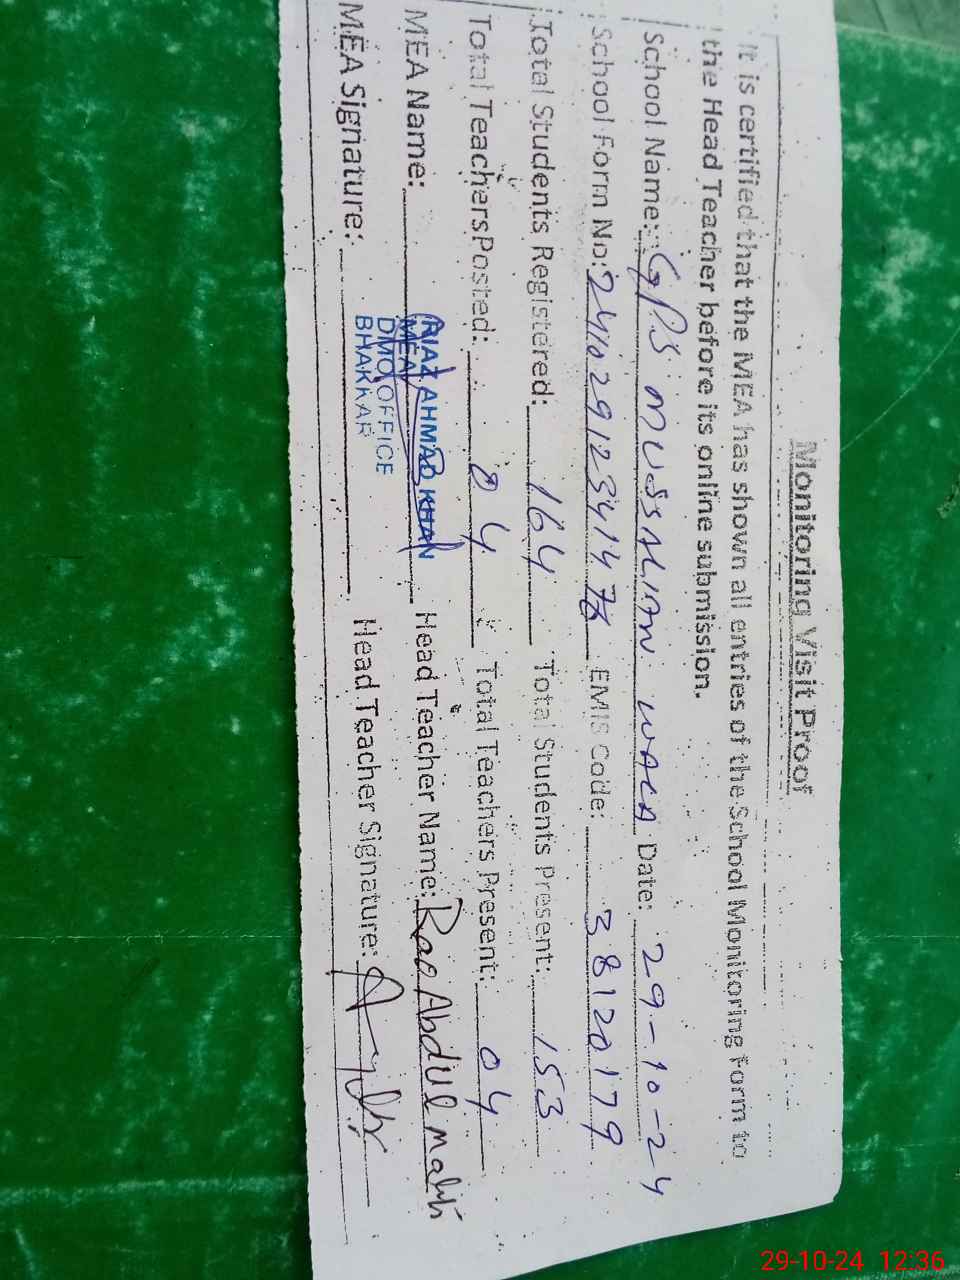 Monitoring Visit Proof
It is certified that the MEA has shown all entries of the School Monitoring Form to
the Head Teacher before its online submission.
School Name: GPS MUSSALIAN WALA Date: 29-10-24
School Form No: EMIS Code: 38120179
Total Students Registered: 164 Total Students Present: 153
Total Teachers Posted: 04 Total Teachers Present: 04
MEA Name: RIAZ AHMAD KHAN Head Teacher Name: Rao Abdul malik
MEA
DMO OFFICE
BHAKKAR
MEA Signature: Head Teacher Signature:
29-10-24 12:36